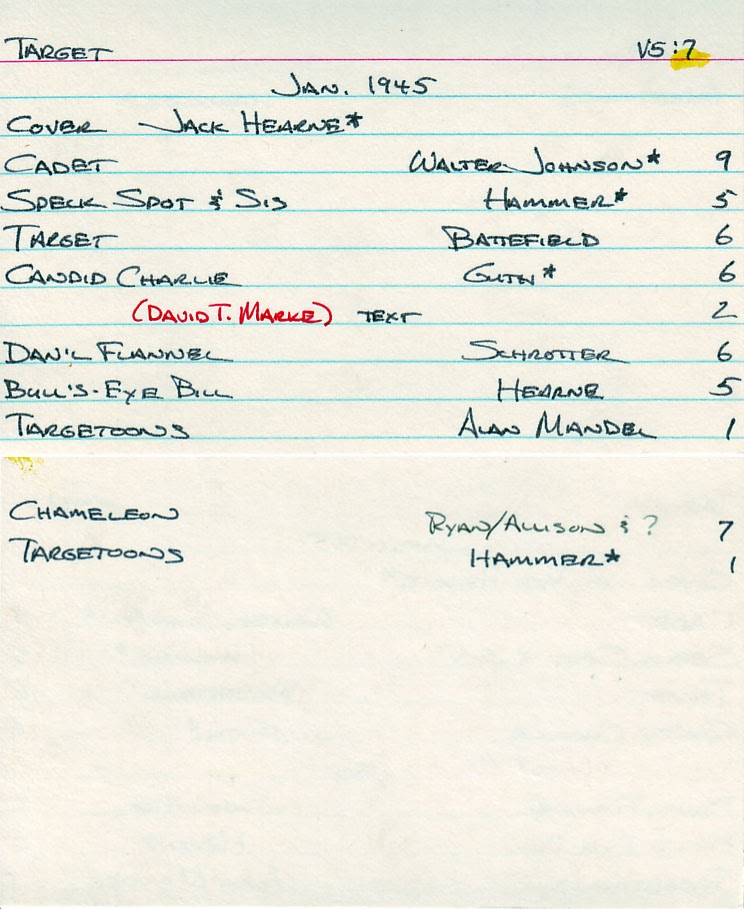 TARGET V5:7
JAN. 1945
COVER JACK HEARNE*
CADET WALTER JOHNSON* 9
SPECK SPOT & SIS HAMMER* 5
TARGET BATTEFIELD 6
CANDID CHARLIE GUTH* 6
(DAVID T. MARKE) TEXT 2
DAN'L FLANNEL SCHROTTER 6
BULL'S-EYE BILL HEARNE 5
TARGETOONS ALAN MANDEL 1
CHAMELEON RYAN/ALLISON & ? 7
TARGETOONS HAMMER* 1